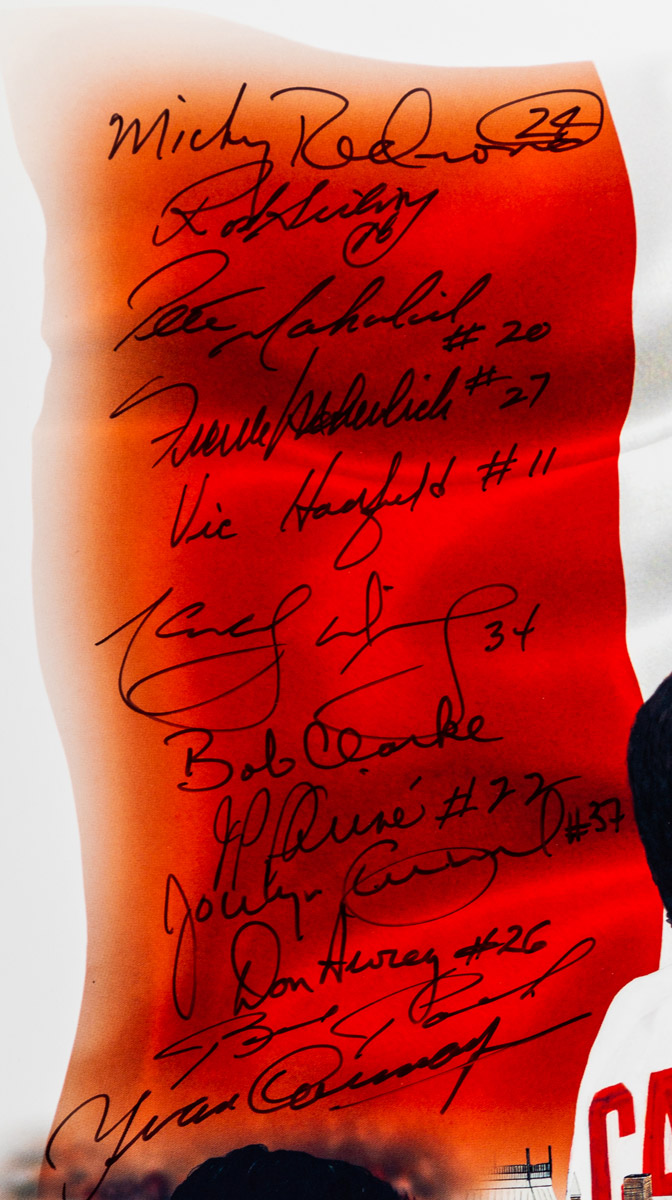 Mickey Redmond 24
Rod Gilbert
Pete Mahovlich
#20
Frank Mahovlich #27
Vic Hadfield #11
34
Bob Clarke
JP Parisé #22
Jocelyn Guevremont #37
Don Awrey #26
Brad Park
Yvan Cournoyer
CA